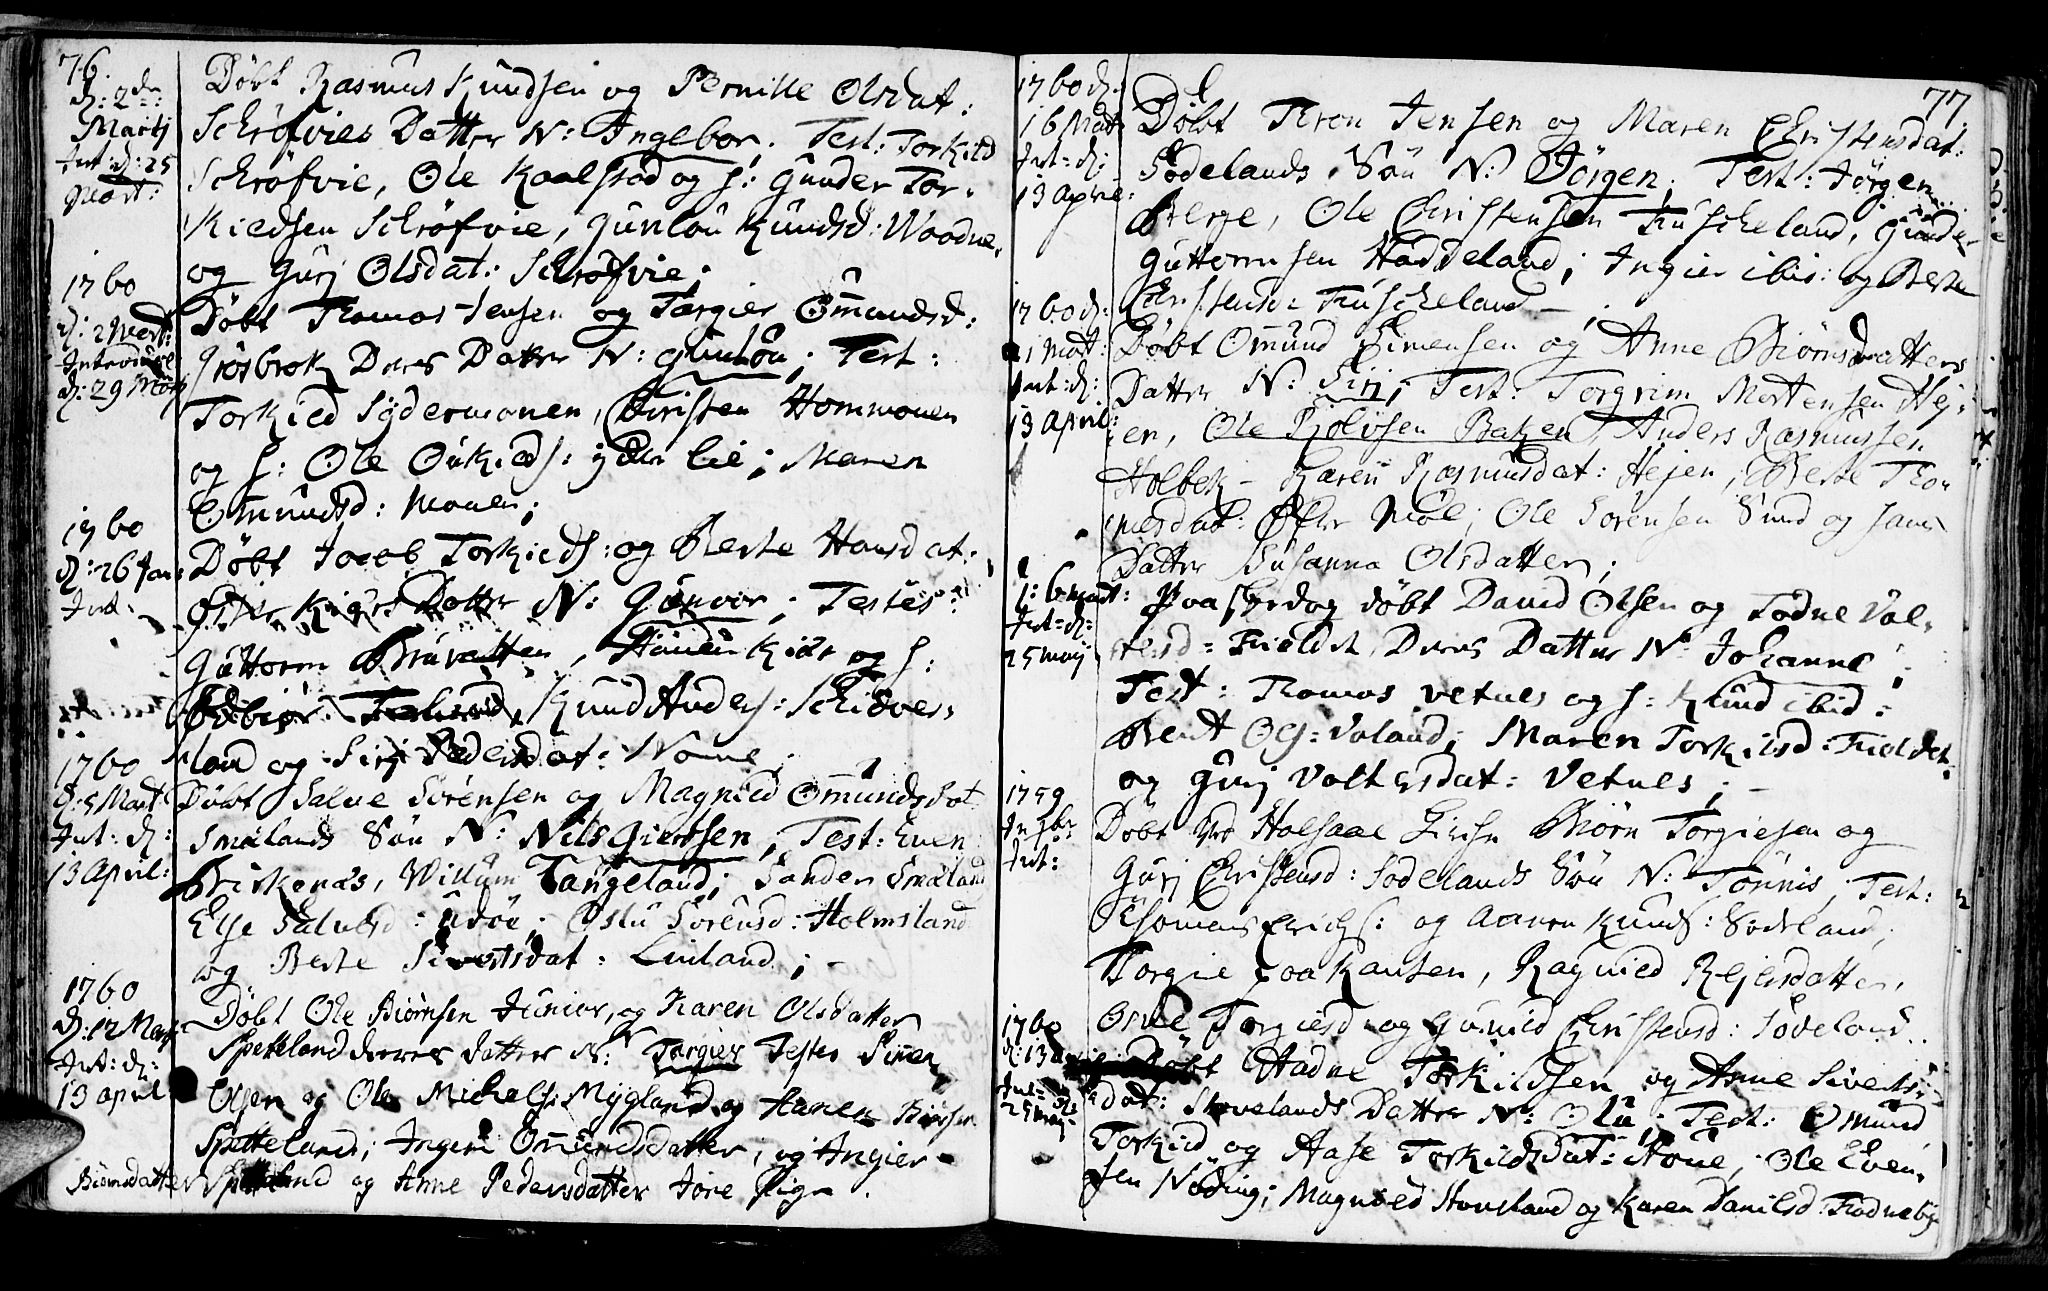 76.
d: 2den
Martj
Int: d: 25
Mart:
Döbt Rasmus Knudsen og Pernille Olsdat:
Schröfvies Datter N: Ingebor. Test: Torkild
Schröfvie, Ole Kaalstad og S: Gunder Tor-
Kieldsen Schröfvie, Gunlou Knudsd: Waadne,
og Gurj Olsdat: Schröfvie;
1760
d: 2 Mart:
Introduce
d: 29 Mart
Döbt Thomas Jensen og Targier Omundsd:
Grosbrok Deres Datter N: Gunlou; Test:
Torkied Sødermonen, Christen Hommonen
og S: Ole Ovkieds: lie; Maren
Omundsd: Monen;
1760
d: 26 Jan:
Int:
Döbt Jacob Torkieds: og Berte Hansdat:
Datter N: Gunvor; Testes:
Guttorm og S:
Knud Anders: Schiever-
land og Sirj Pedersdat:
1760
d: 5 Mart
Int: d:
13 April:
Döbt Salve Sörensen og Magnild Omundsdat
Smelands Sön N: Nils Giertsen, Test: Even
Birkenæs, Willum Tangeland; Sander Smeland
Else Salvesd: Udöe; Aslu Sörensd: Holmsland
og Berte Sivertsdat: Linland; -
1760
d: 12 Mart
Int: d:
13 april
Döbt Ole Biörnsen Junior, og Karen Olsdatter
Spetteland deres datter N: Targier Testes
Olsen og Ole Michels: Mygland og Biörnsen
Spetteland; Ingeri Omundsdatter, og Ingier
Biörnsdatter Spetteland og Anne Pedersdatter Jore Pige.
77.
1760 d:
16 Mart
Int: d:
13 april:
Döbt Tron Jensen og Maren Christensdat:
Södelands Sön N: Jörgen; Test: Jörgen
Berge, Ole Christensen Fuscheland, Gunder
Guttormsen Haddeland; Ingier ibid: og Berte
Christensd: Fuscheland -
1760 d:
21 Mart:
Int: d:
13 April:
Döbt Omund Simensen og Anne Biörnsdatters
Datter N: Sirj; Test: Torgrim Mortensen Hej-
en, Ole Baken, Anders Rasmussen
Holbek - Karen Rasmusdat: Hejen; Berte Tho-
mesdat: Ole Sörensen Sund og hans
Datter Susanna Olsdatter;
d: 6 Mart:
Int: d:
25 Maij
döbt David Olsen og Todne Vol-
tersd: Fieldet, Deres Datter N: Johanne;
Test: Thomas Vetnes og S: Knud ibid:
Bent Ols: Voland; Maren Torkilsd: Fieldet
og Gurj Voltersdat: Vetnes; -
1759
Int:
Döbt Holsaae Biörn Torgiesen og
Gurj Christensd: Södelands Sön N: Tönnis, Test:
Erichs: og Aanon Knuds: Söderland;
Torgie Haakansen, Ragnild Rejersdatter,
Torgiesd: og Gunild Christensd: Södeland.
1760
d: 13
Int:
25 Maij
Döbt Aadne Torkildsen og Anne Siverts-
dat: Stovelands Datter N: Olu; Test: Omund
Torkild og Aase Torkildsdat: ; Ole Even-
sen Nöding; Magnild Stoveland og Karen Danilsd: